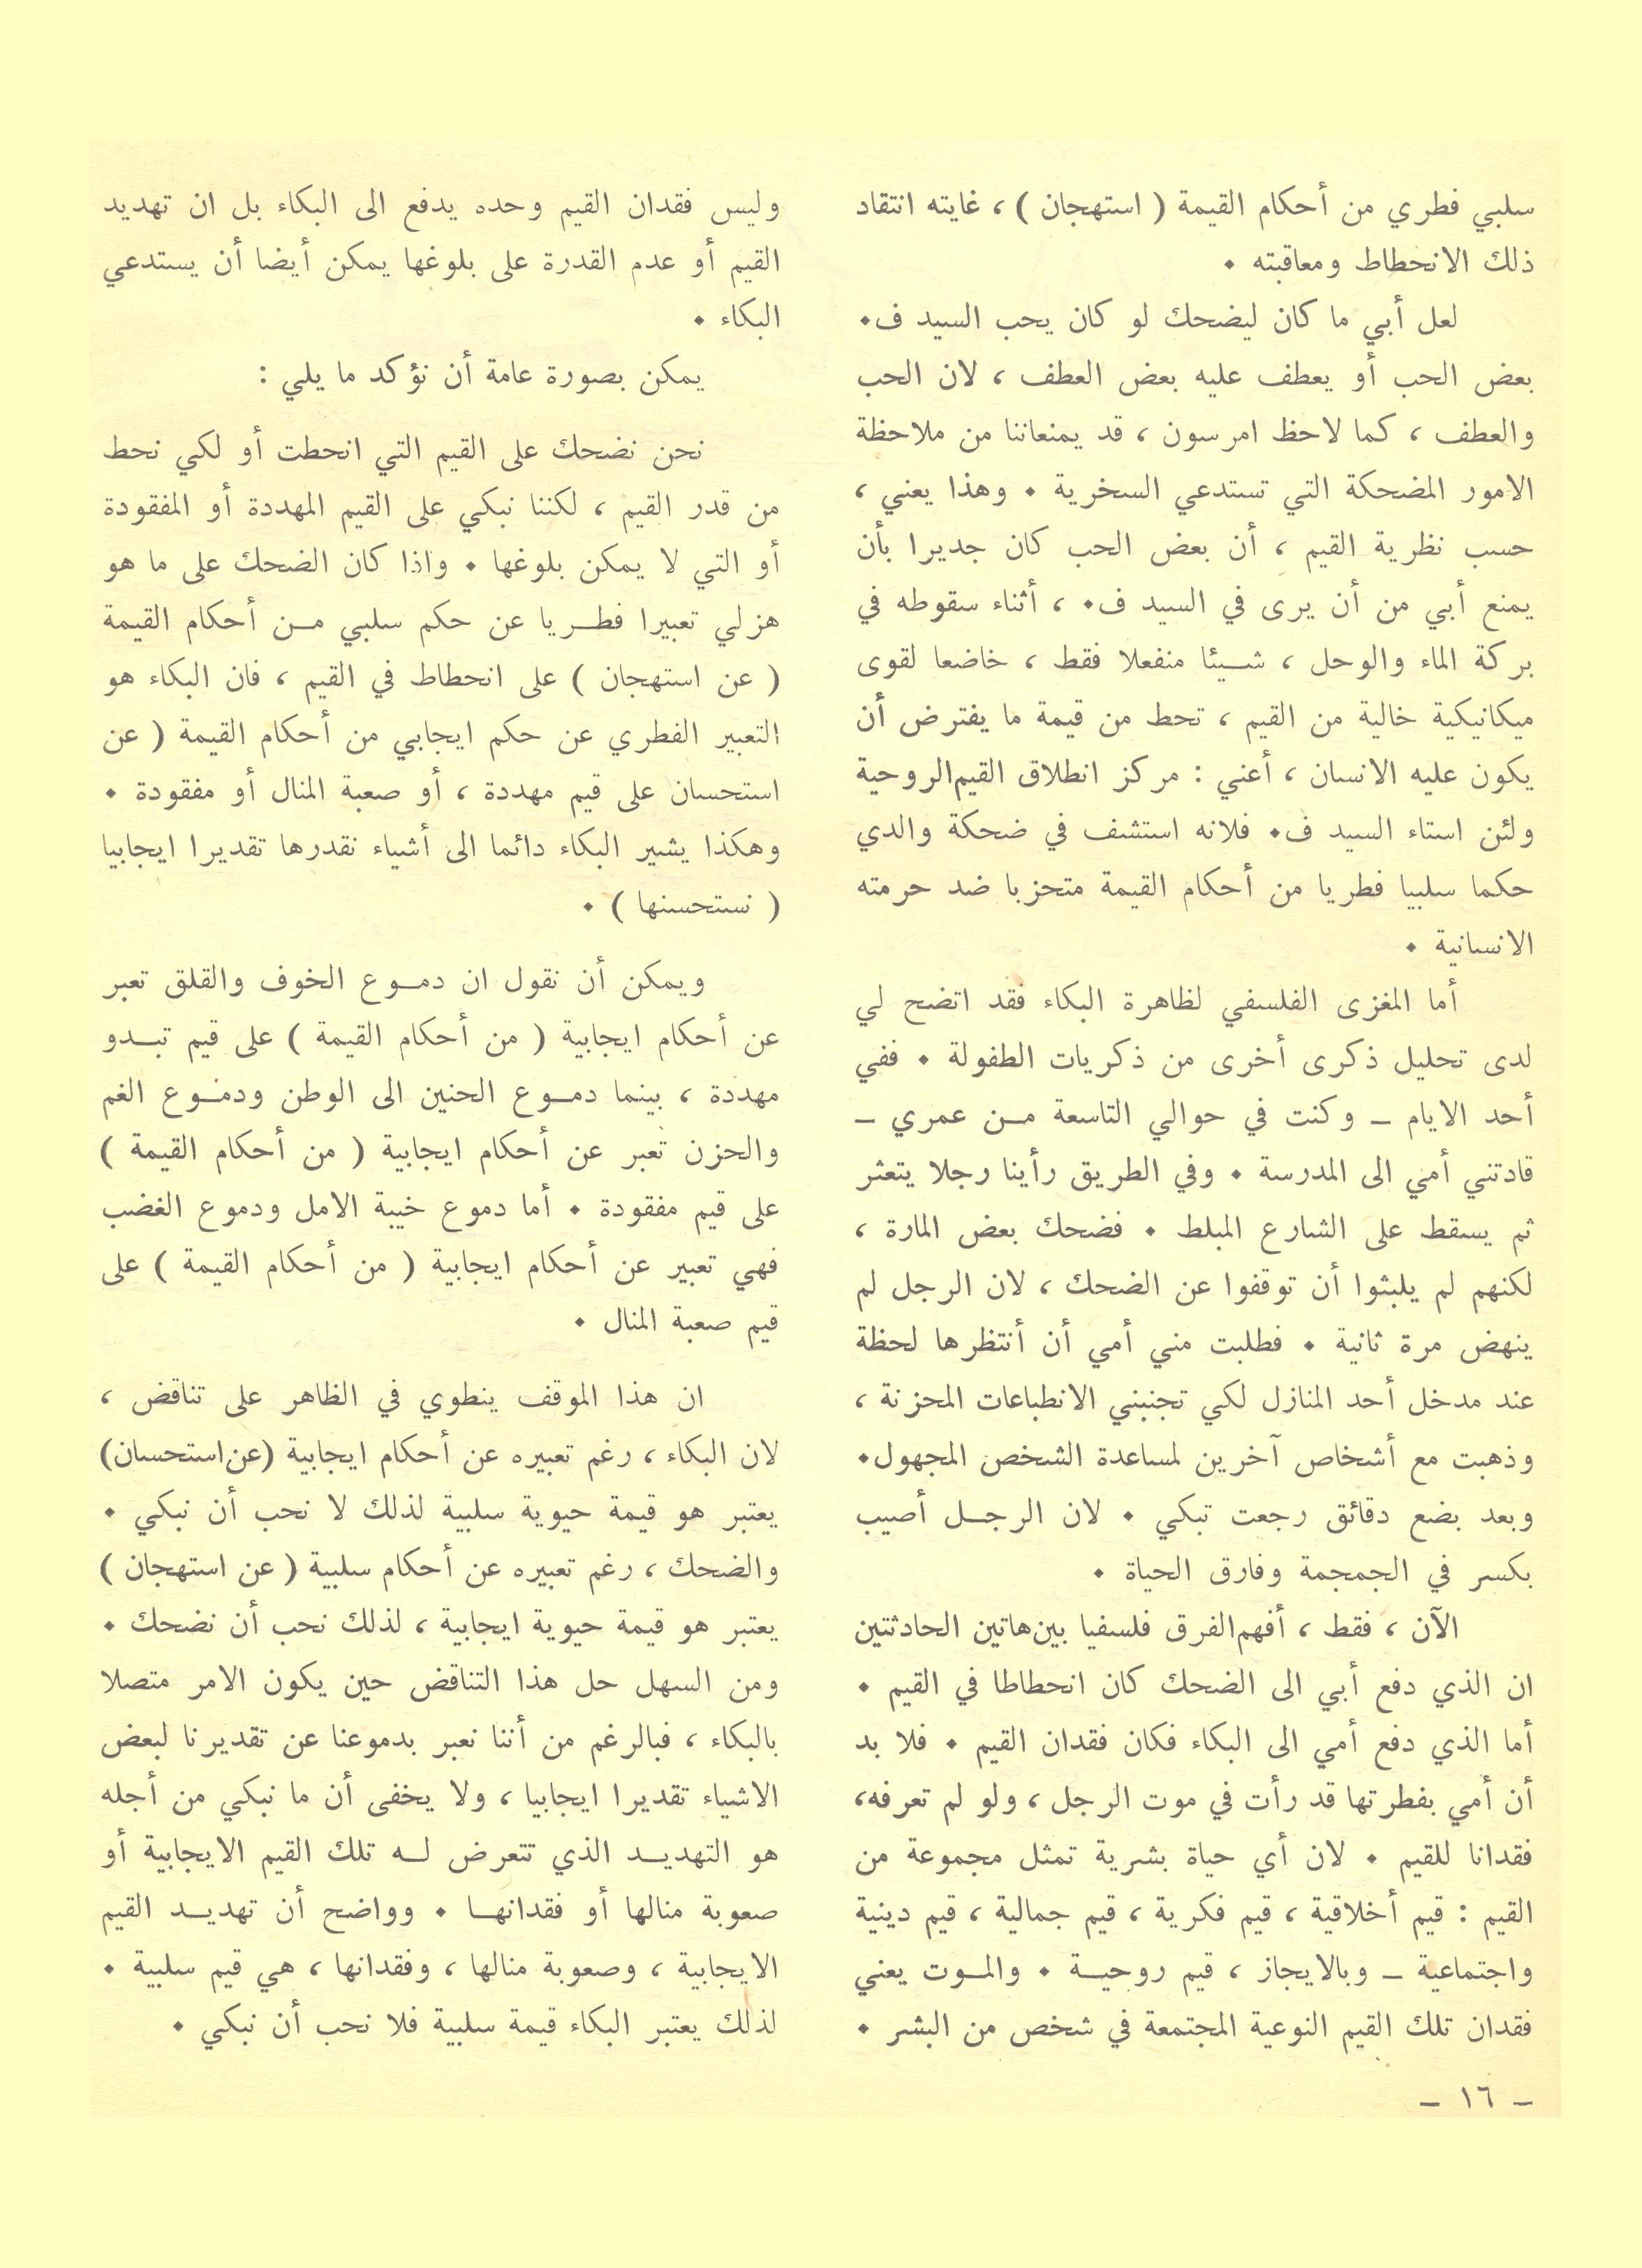 سلبي فطري من أحكام القيمة ( استهجان ) ، غايته انتقاد
ذلك الانحطاط ومعاقبته ٠
لعل أبي ما كان ليضحك لو كان يحب السيد ف٠
بعض الحب أو يعطف عليه بعض العطف ، لان الحب
والعطف ، كما لاحظ امرسون ، قد يمنعاننا من ملاحظة
الامور المضحكة التي تستدعي السخرية ٠ وهذا يعني ،
حسب نظرية القيم ، أن بعض الحب كان جديرا بأن
يمنع أبي من أن يرى في السيد ف٠ ، أثناء سقوطه في
بركة الماء والوحل ، شيئا منفعلا فقط ، خاضعا لقوى
ميكانيكية خالية من القيم ، تحط من قيمة ما يفترض أن
يكون عليه الانسان ، أعني : مركز انطلاق القيم الروحية
ولئن استاء السيد ف٠ فلانه استشف في ضحكة والدي
حكما سلبيا فطريا من أحكام القيمة متحزبا ضد حرمته
الانسانية ٠
أما المغزى الفلسفي لظاهرة البكاء فقد اتضح لي
لدى تحليل ذكرى أخرى من ذكريات الطفولة ٠ ففي
أحد الايام ــ وكنت في حوالي التاسعة مــن عمري ــ
قادتني أمي الى المدرسة ٠ وفي الطريق رأينا رجلا يتعثر
ثم يسقط على الشارع المبلط ٠ فضحك بعض المارة ،
لكنهم لم يلبثوا أن توقفوا عن الضحك ، لان الرجل لم
ينهض مرة ثانية ٠ فطلبت مني أمي أن أنتظرها لحظة
عند مدخل أحد المنازل لكي تجنبني الانطباعات المحزنة ،
وذهبت مع أشخاص آخرين لمساعدة الشخص المجهول٠
وبعد بضع دقائق رجعت تبكي ٠ لان الرجــل أصيب
بكسر في الجمجمة وفارق الحياة ٠
الآن ، فقط ، أفهم الفرق فلسفيا بين هاتين الحادثتين
ان الذي دفع أبي الى الضحك كان انحطاطا في القيم ٠
أما الذي دفع أمي الى البكاء فكان فقدان القيم ٠ فلا بد
أن أمي بفطرتها قد رأت في موت الرجل ، ولو لم تعرفه،
فقدانا للقيم ٠ لان أي حياة بشرية تمثل مجموعة من
القيم : قيم أخلاقية ، قيم فكرية ، قيم جمالية ، قيم دينية
واجتماعية ــ وبالايجاز ، قيم روحيــة ٠ والمــوت يعني
فقدان تلك القيم النوعية المجتمعة في شخص من البشر ٠
ــ ١٦ ــ
وليس فقدان القيم وحده يدفع الى البكاء بل ان تهديد
القيم أو عدم القدرة على بلوغها يمكن أيضا أن يستدعي
البكاء ٠
يمكن بصورة عامة أن نؤكد ما يلي :
نحن نضحك على القيم التي انحطت أو لكي نحط
من قدر القيم ، لكننا نبكي على القيم المهددة أو المفقودة
أو التي لا يمكن بلوغها ٠ واذا كان الضحك على ما هو
هزلي تعبيرا فطــريا عن حكم سلبي مــن أحكام القيمة
( عن استهجان ) على انحطاط في القيم ، فان البكاء هو
التعبير الفطري عن حكم ايجابي من أحكام القيمة ( عن
استحسان على قيم مهددة ، أو صعبة المنال أو مفقودة ٠
وهكذا يشير البكاء دائما الى أشياء نقدرها تقديرا ايجابيا
( نستحسنها ) ٠
ويمكن أن نقول ان دمــوع الخوف والقلق تعبر
عن أحكام ايجابية ( من أحكام القيمة ) على قيم تبــدو
مهددة ، بينما دمــوع الحنين الى الوطن ودمــوع الغم
والحزن تعبر عن أحكام ايجابية ( من أحكام القيمة )
على قيم مفقودة ٠ أما دموع خيبة الامل ودموع الغضب
فهي تعبير عن أحكام ايجابية ( من أحكام القيمة ) على
قيم صعبة المنال ٠
ان هذا الموقف ينطوي في الظاهر على تناقض ،
لان البكاء ، رغم تعبيره عن أحكام ايجابية (عن استحسان)
يعتبر هو قيمة حيوية سلبية لذلك لا نحب أن نبكي ٠
والضحك ، رغم تعبيره عن أحكام سلبية ( عن استهجان )
يعتبر هو قيمة حيوية ايجابية ، لذلك نحب أن نضحك ٠
ومن السهل حل هذا التناقض حين يكون الامر متصلا
بالبكاء ، فبالرغم من أننا نعبر بدموعنا عن تقديرنا لبعض
الاشياء تقديرا ايجابيا ، ولا يخفى أن ما نبكي من أجله
هو التهديــد الذي تتعرض لــه تلك القيم الايجابية أو
صعوبة منالها أو فقدانهــا ٠ وواضح أن تهديــد القيم
الايجابية ، وصعوبة منالها ، وفقدانها ، هي قيم سلبية ٠
لذلك يعتبر البكاء قيمة سلبية فلا نحب أن نبكي ٠